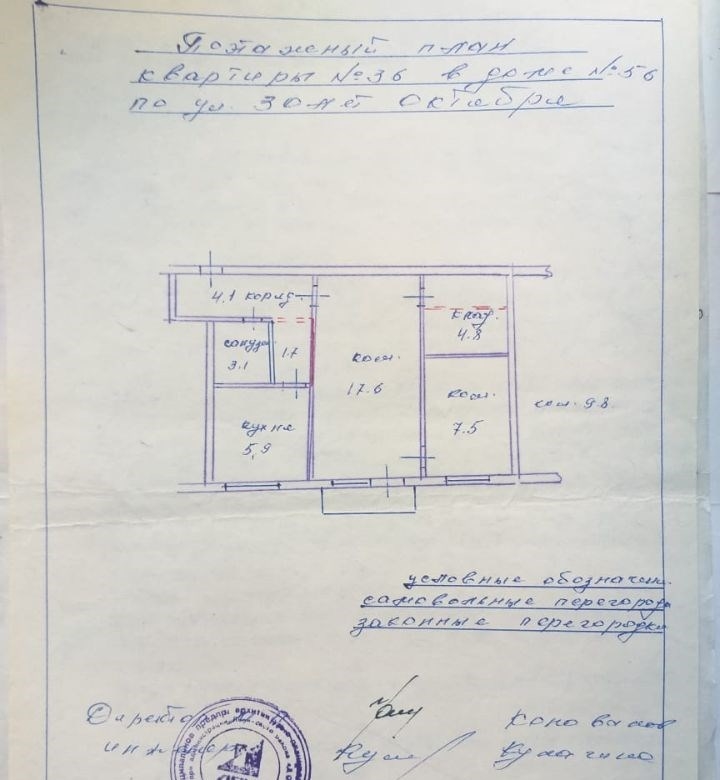 Поэтажный план
квартиры №36 в доме №56
по ул. 30 лет Октября
4.1 корид.
санузел
3.1
1.7
клад.
4.8
ком.
17.6
кухня
5,9
ком.
7.5
9.8
условные обозначени
самовольные перегородк
законные перегородки
Директо
инженер
Коновалов